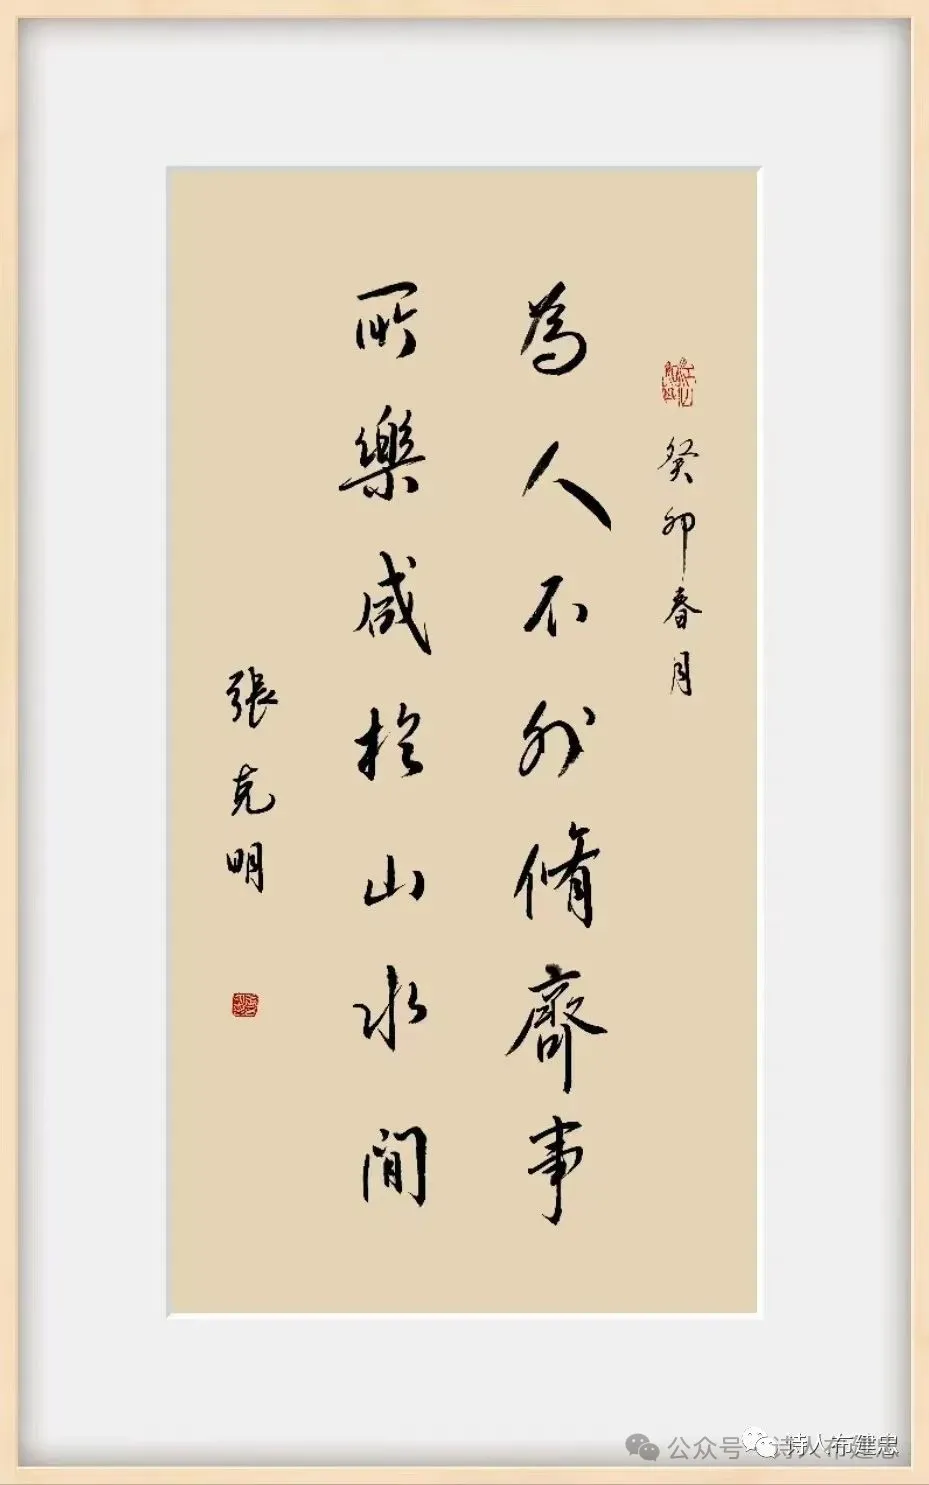 癸卯春月
為人不外脩齋事
所樂咸於山水間
張克明
公众号·诗人布建忠
诗人布建忠